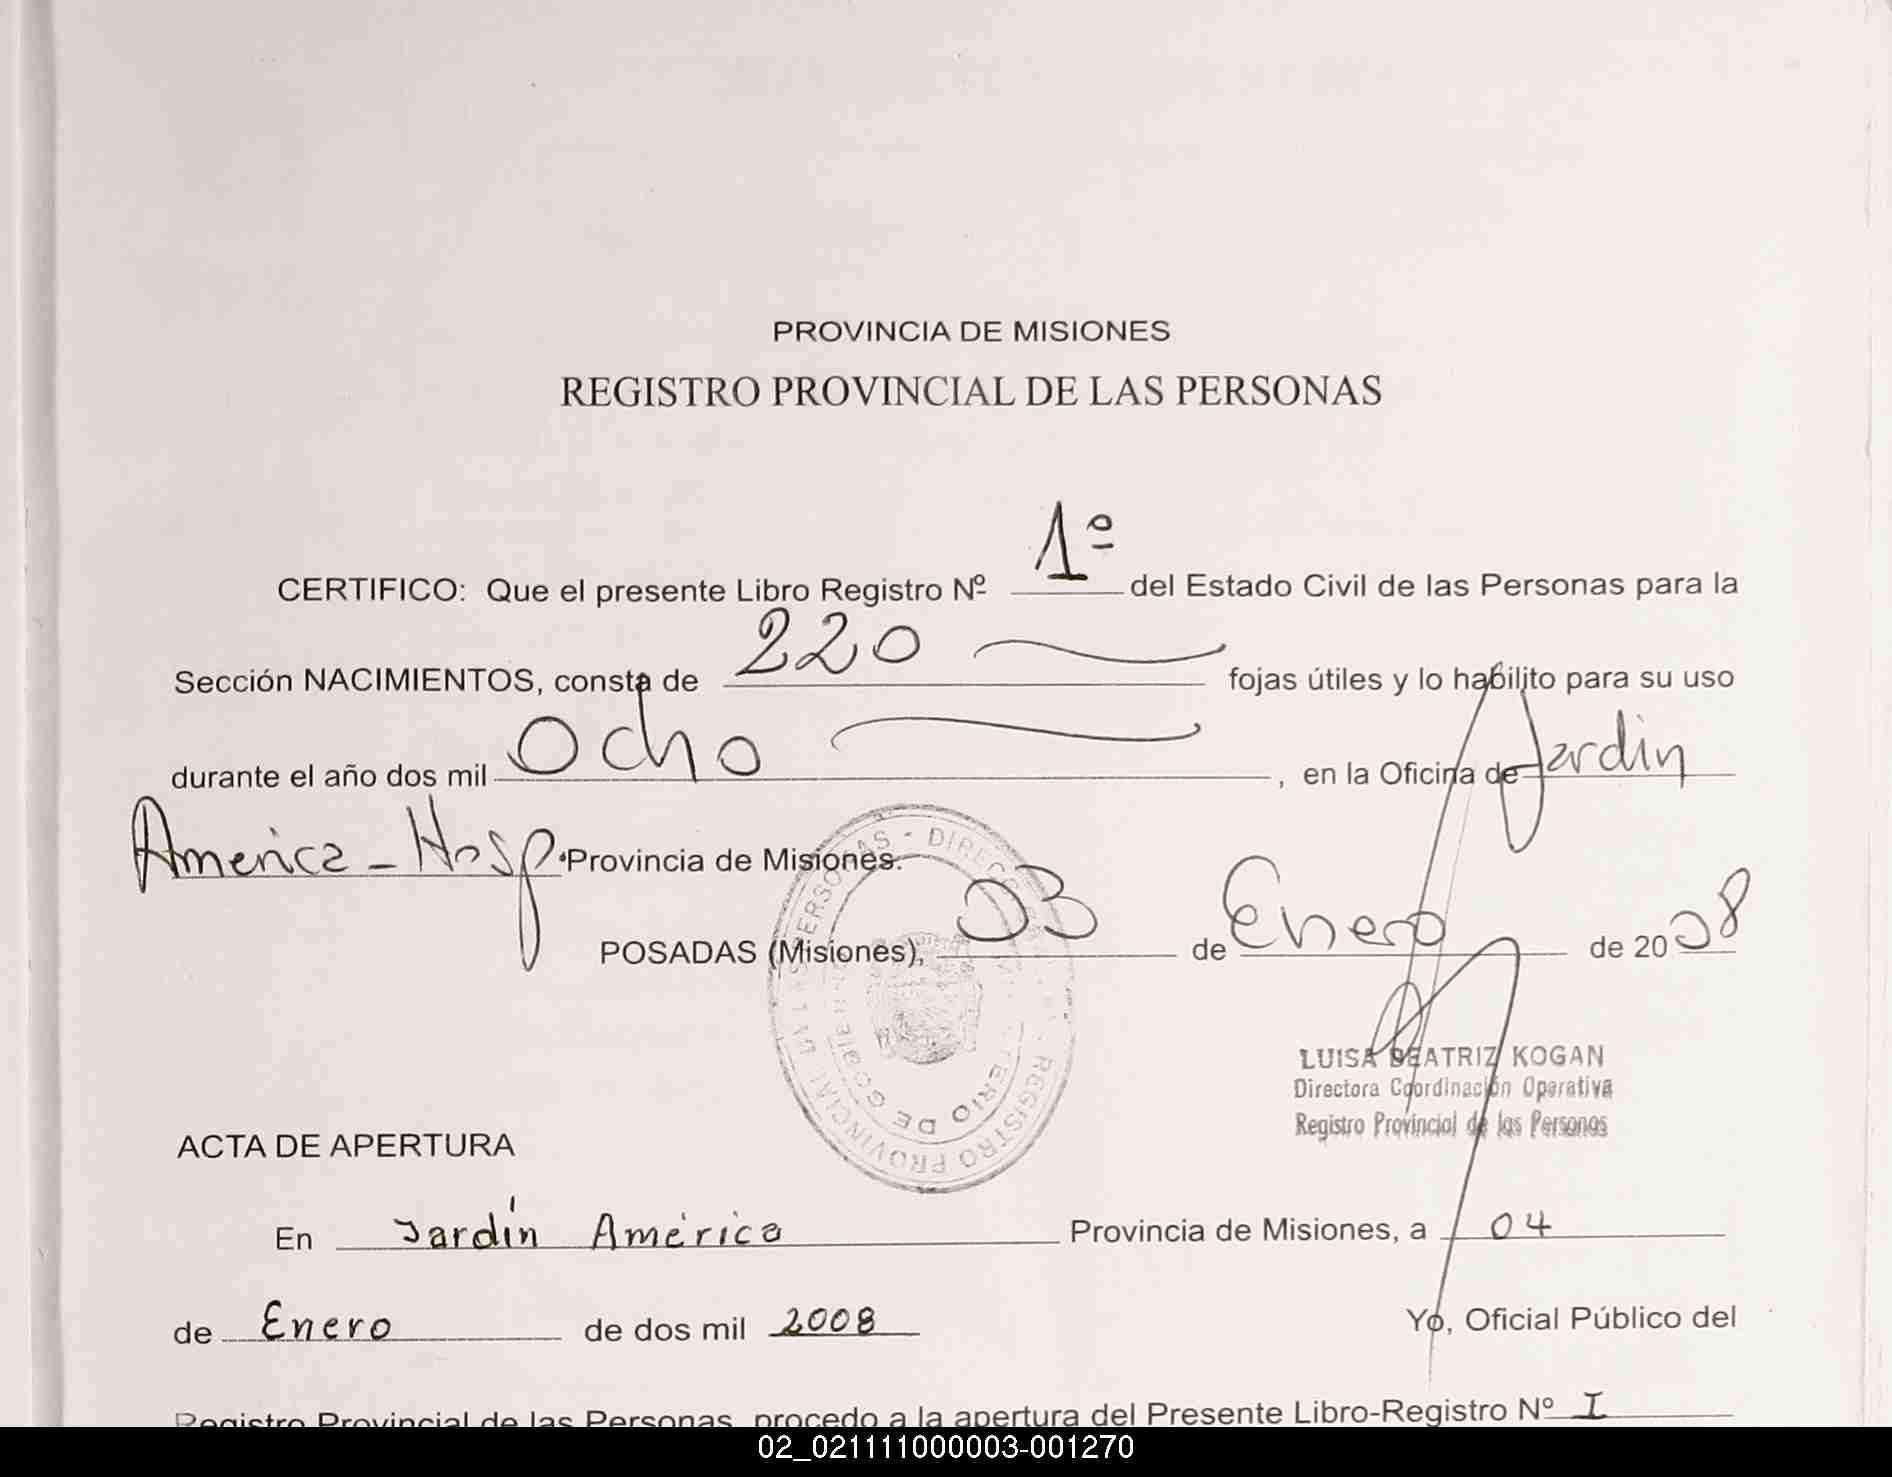 PROVINCIA DE MISIONES
REGISTRO PROVINCIAL DE LAS PERSONAS
CERTIFICO: Que el presente Libro Registro Nº 1º del Estado Civil de las Personas para la
Sección NACIMIENTOS, consta de 220 fojas útiles y lo habilito para su uso
durante el año dos mil Ocho, en la Oficina de Jardin
America - Hosp. Provincia de Misiones.
POSADAS (Misiones), 03 de Enero de 2008
LUISA BEATRIZ KOGAN
Directora Coordinación Operativa
Registro Provincial de las Personas
ACTA DE APERTURA
En Jardín América Provincia de Misiones, a 04
de Enero de dos mil 2008 Yo, Oficial Público del
Registro Provincial de las Personas, procedo a la apertura del Presente Libro-Registro Nº I
02_021111000003-001270